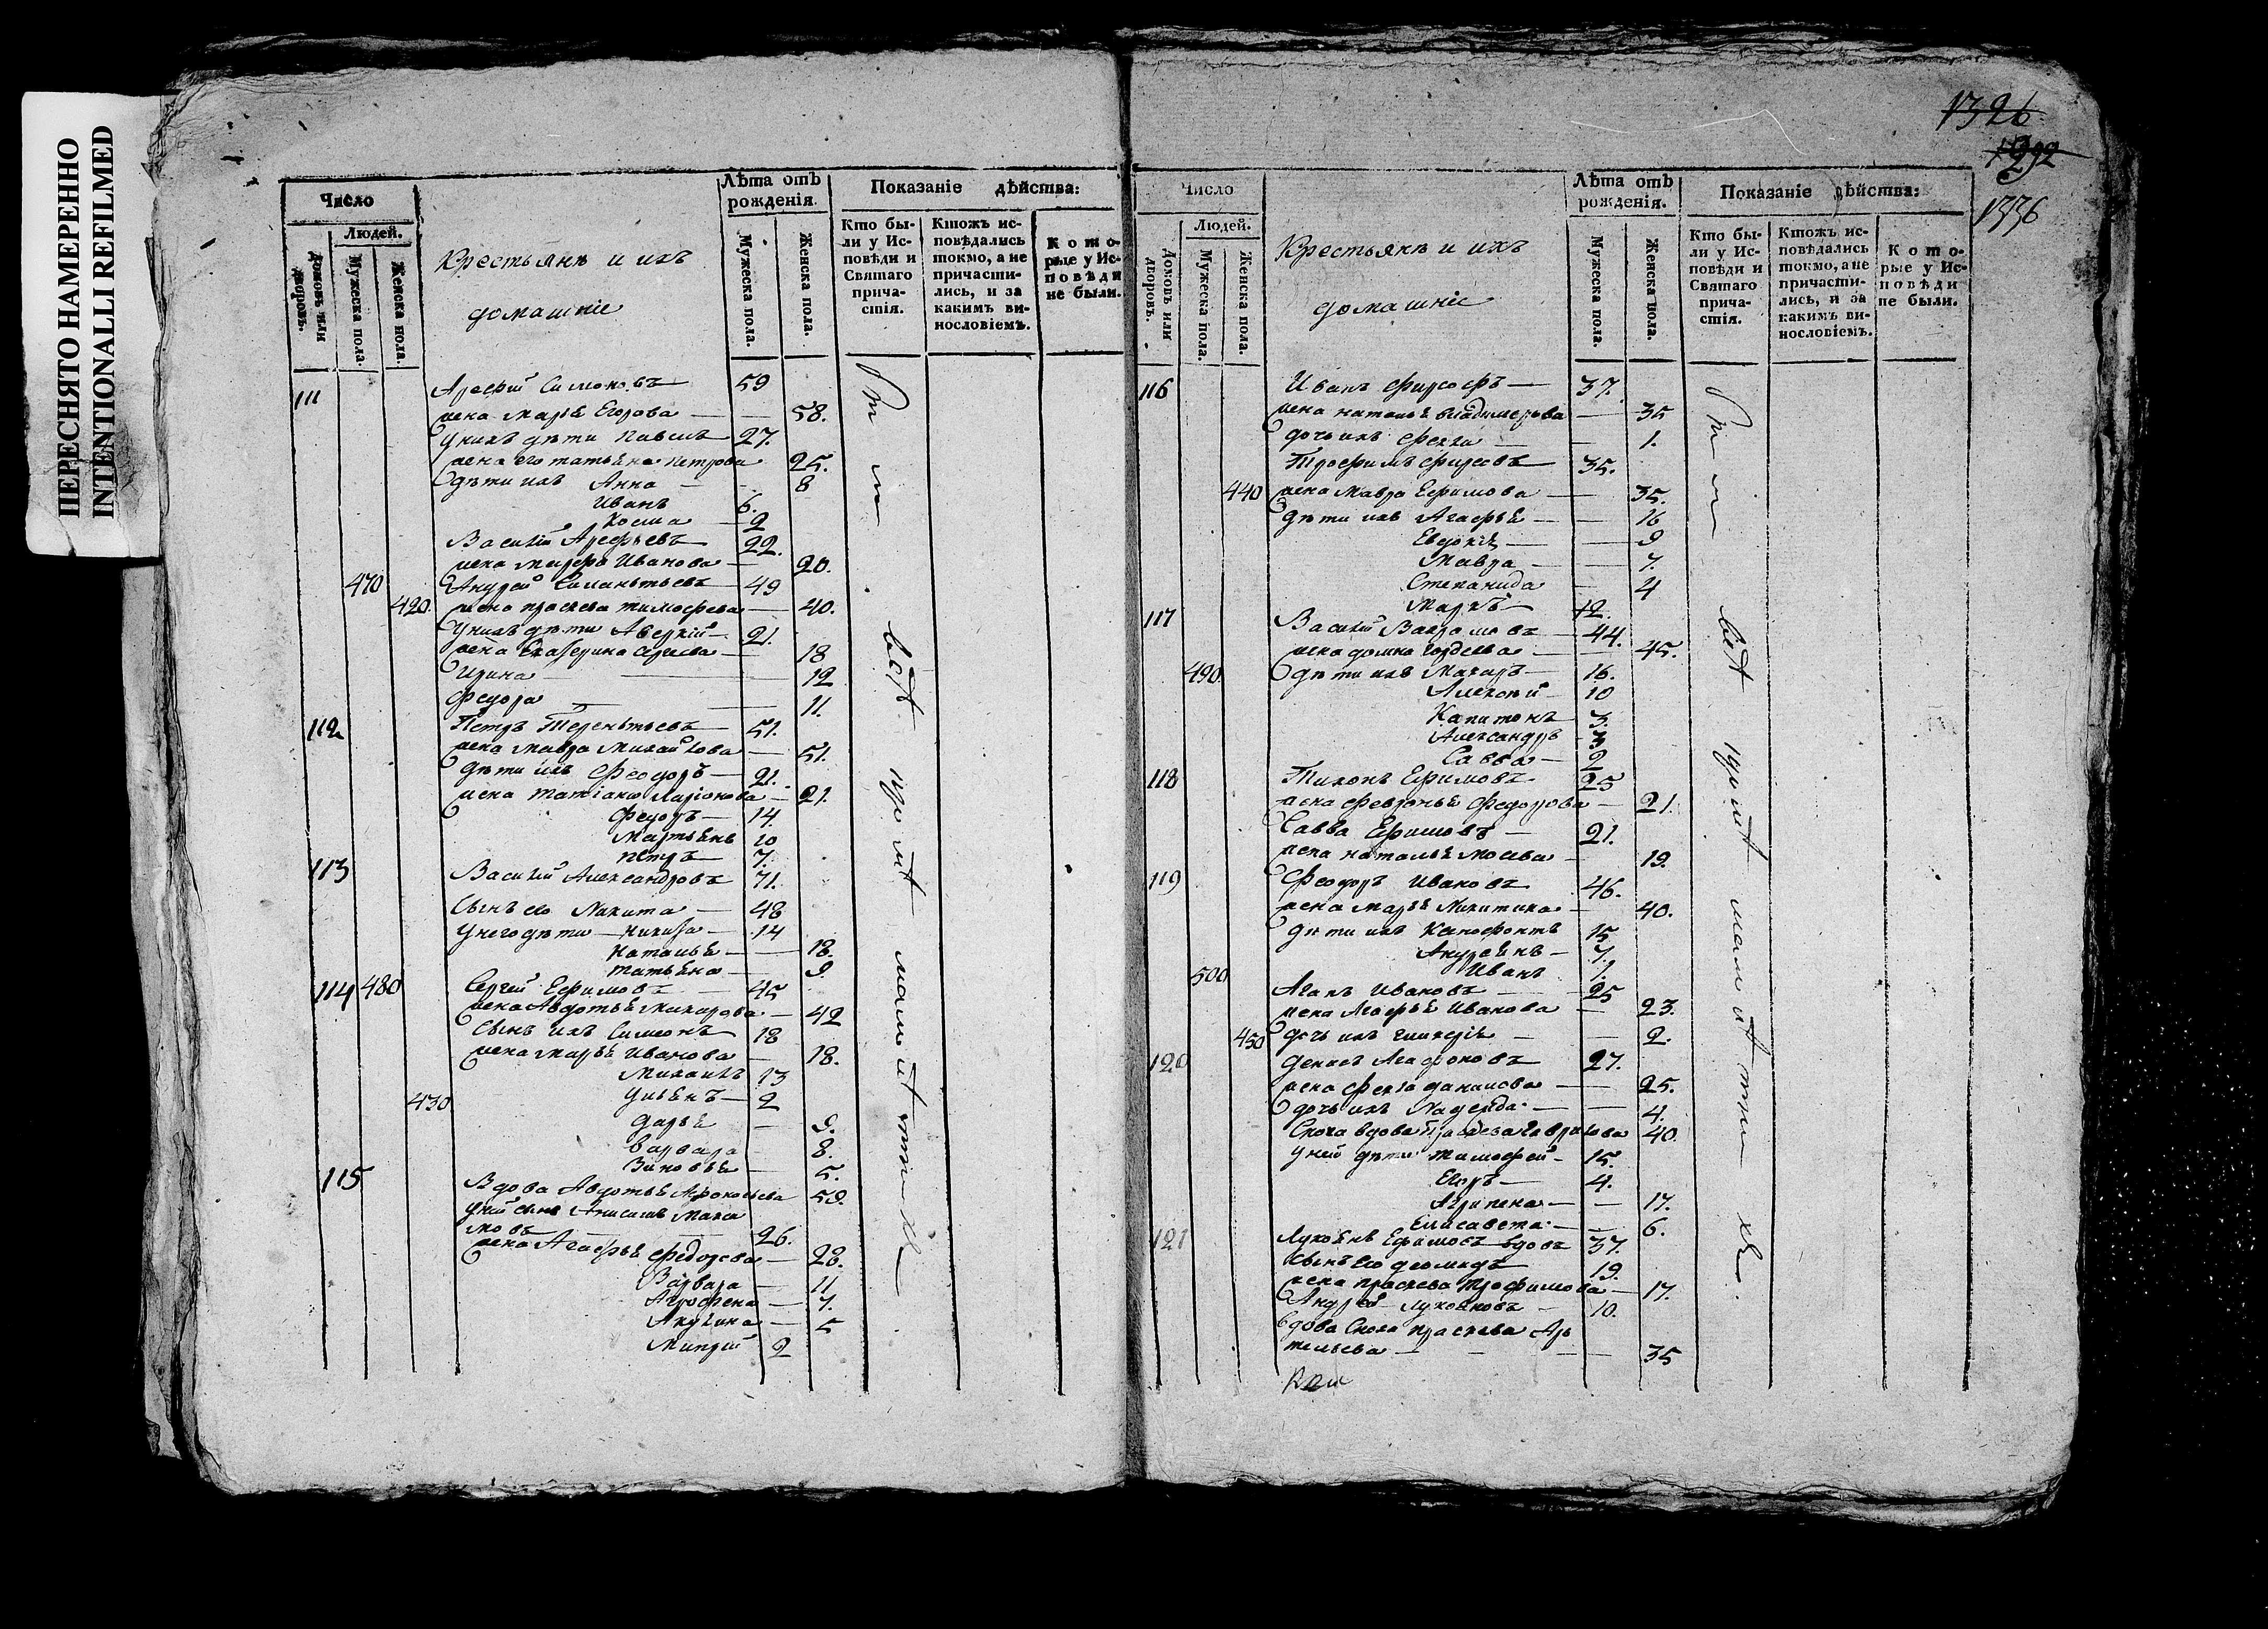 ПЕРЕСНЯТО НАМЕРЕННО
INTENTIONALLI REFILMED
Число
Людей.
Домовъ или дворовъ.
Мужеска пола.
Женска пола.
Крестьянѣ и ихъ
домашніе
Лѣта отъ рожденія.
Мужеска пола.
Женска пола.
Показаніе дѣйства:
Кто бы-
ли у Ис-
повѣди и
Святаго
прича-
стія.
Ктожъ ис-
повѣдались
токмо, а не
причасти-
лись, и за
какимъ ви-
нословіемъ.
Кото-
рые у Ис-
повѣди
не были.
111 Арефій Симоновъ 59
жена Марья Егорова — — 58.
у нихъ дѣти Павелъ — 27.
жена его татьяна Петрова 25.
дѣти ихъ Анна — — 8
Иванъ 6.
Косма — 2
Василій Арефьевъ 22.
жена Марфа Иванова — 20.
470 Андрей 49
420. жена праскева тимофеева — 40.
у нихъ дѣти Аверкій — 21.
жена Екатерина — 18
Ирина — 12
Федора — — 11.
112 Петръ Терентьевъ — 51.
жена мавра Михайлова — 51.
дѣти ихъ Феодоръ — 21.
жена татіана Ларіонова — 21.
Федоръ — 14.
Мартьянъ 10
петръ — 7.
113 Василій Александровъ 71.
сынъ его Никита — 48
у него дѣти — — 14
Наталья — — 18.
татьяна — 9.
114 480 Сергей Ефимовъ — 45
жена Авдотья Макарова — 42
сынъ ихъ Симеонъ 18
жена марья Иванова — 18.
Михаилъ 13
430. Ульянъ — 2
дарья — 9.
варвара — 8.
Зиновья — 5.
115 Вдова Авдотья 59.
у ней сынъ Анисимъ Макси
мовъ — 26.
жена Агафья Федорова — 28.
Варвара — 11
Агрофена — 7.
Акулина — 5
2
1326
1292
1336
Число
Людей.
Домовъ или дворовъ.
Мужеска пола.
Женска пола.
Крестьянѣ и ихъ
домашніе
Лѣта отъ рожденія.
Мужеска пола.
Женска пола.
Показаніе дѣйства:
Кто бы-
ли у Ис-
повѣди и
Святаго
прича-
стія.
Ктожъ ис-
повѣдались
токмо, а не
причасти-
лись, и за
какимъ ви-
нословіемъ.
Кото-
рые у Ис-
повѣди
не были.
116 Иванъ — 37.
жена наталья владимерова — 35
дочь ихъ Фекла — — 1.
Трофимъ 35.
440 жена Мавра Ефимова — — 35.
дѣти ихъ Агафья — — 16
Евдокія — — 9
Мавра — — 7.
Степанида — 4
Маркъ — 12.
117 Василій — 44.
жена домна Гордеева — 45.
490. дѣти ихъ Макаръ — 16.
Алексѣй — 10
Капитонъ 3.
Александръ — 3
Савва — 2
118 Тихонъ Ефимовъ 25
жена Февронья Федорова — 21.
Савва Ефимовъ — 21.
жена наталья — 19.
119 Феодоръ Ивановъ 46.
жена марья Никитина — 40.
дѣти ихъ 15
Андреянъ — 7.
500 Иванъ 1.
Агапъ Ивановъ — 25
жена Агафья Иванова — 23.
450 дочь ихъ — — 2.
120 Денисъ Агафоновъ 27.
жена Фекла данилова — — 25.
дочь ихъ Надежда — — 4.
Сноха вдова Праскева Гаврилова 40.
у ней дѣти тимофей — 15.
Егоръ — 4.
Агрипена — — 17.
Елисавета — — 6.
121 Лукоянъ Ефимовъ вдовъ 37.
сынъ его деомидъ 19.
жена праскева трофимова — 17.
Андрей Лукояновъ — 10.
вдова Сноха праскева Ар
темьева — — — 35